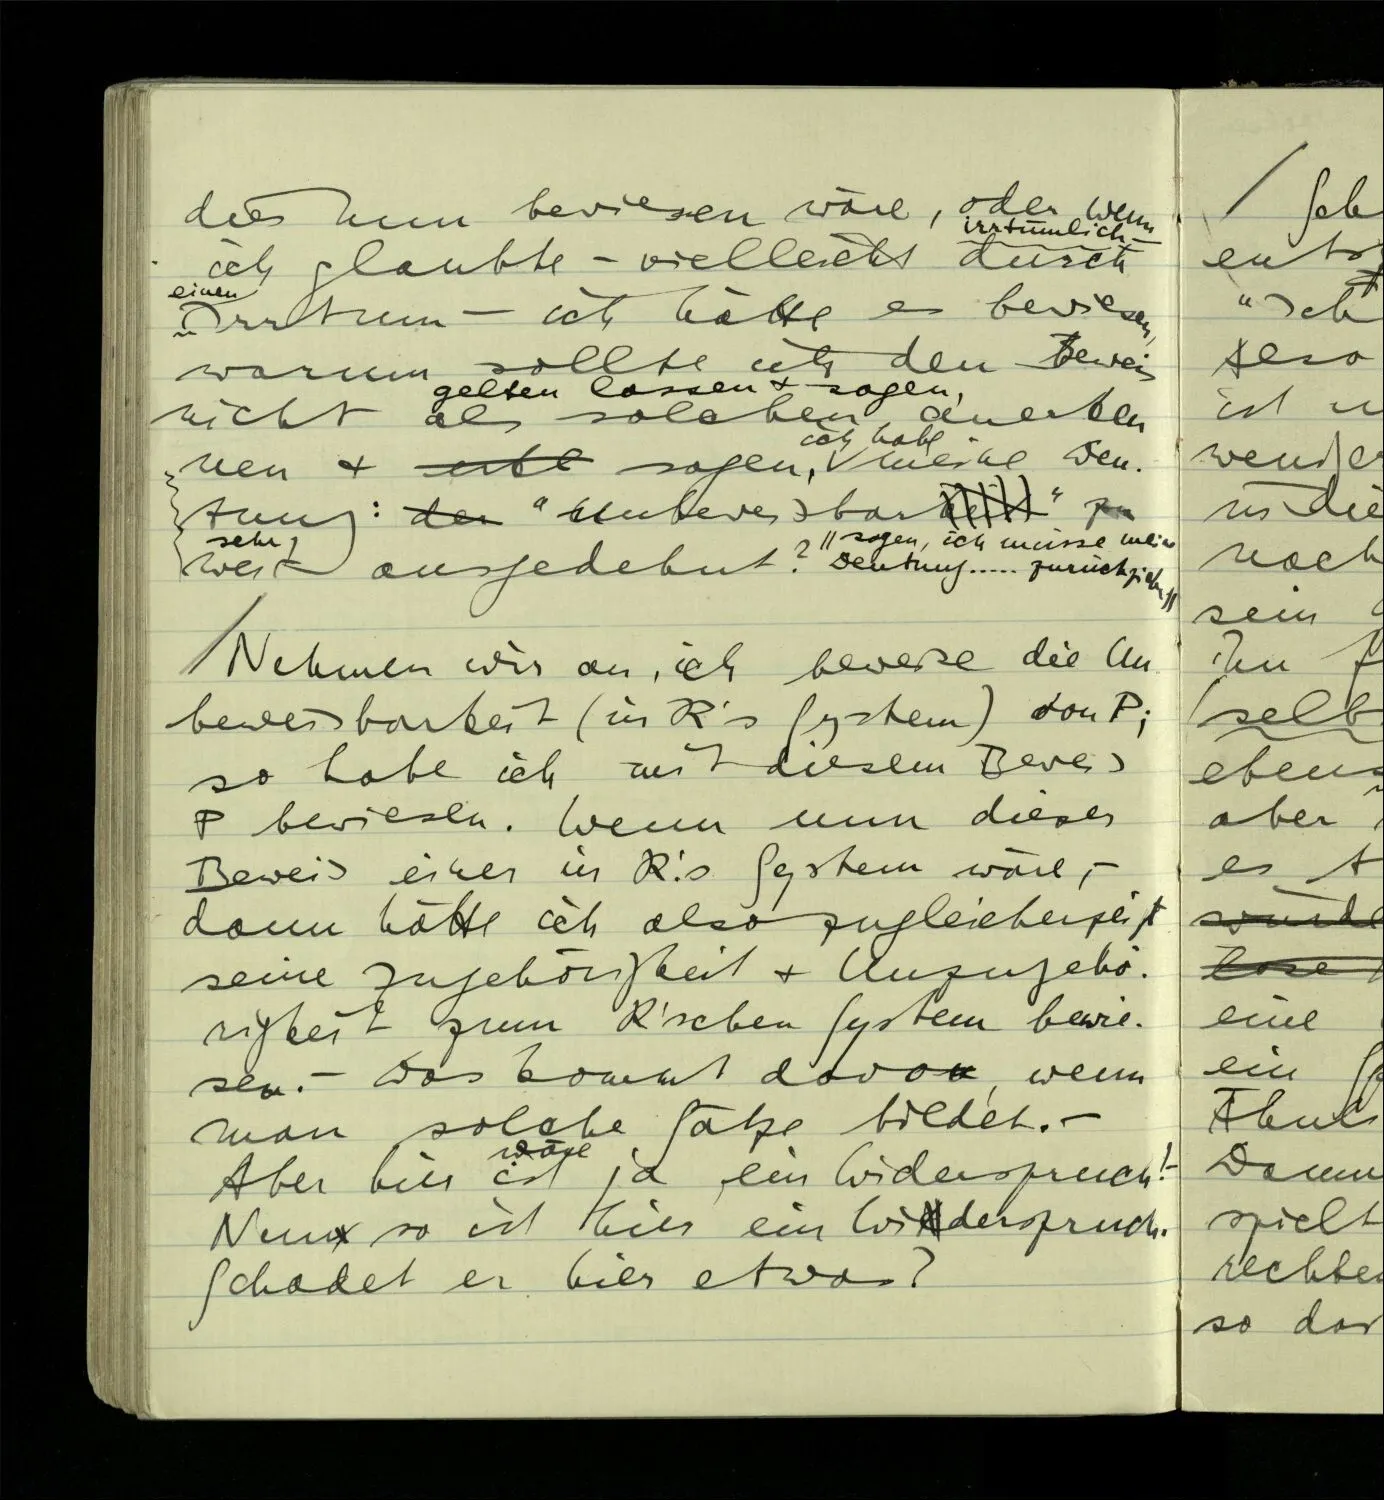 dies nun bewiesen wäre, oder wenn
irrtümlich
ich glaubte – vielleicht durch
einen
Irrtum – ich hätte es bewiesen,
warum sollte ich den Beweis
gelten lassen & sagen,
nicht als solchen anerken
nen & sagen, ich habe meine Deu-
tung: der "Unbeweisbarkeit" zu
sehr
weit ausgedehnt? // sagen, ich müsse meine
Deutung ..... zurückziehen //
/ Nehmen wir an, ich beweise die Un
beweisbarkeit (in R's System) von P;
so habe ich mit diesem Beweis
P bewiesen. Wenn nun dieser
Beweis einer in R.'s System wäre, –
dann hätte ich also zugleich
seine Zugehörigkeit & Unzugehö-
rigkeit zum R'schen System bewie-
sen. – Das kommt davon, wenn
man solche Sätze bildet. –
wäre
Aber hier ist ja ein Widerspruch! –
Nun so ist hier ein Widerspruch.
Schadet er hier etwas?
/ Scha
"Ich
ist
noch
sein
ihn
selb
eben
aber
es
würde
eine
ein
Dann
spielt
rechten
so dar